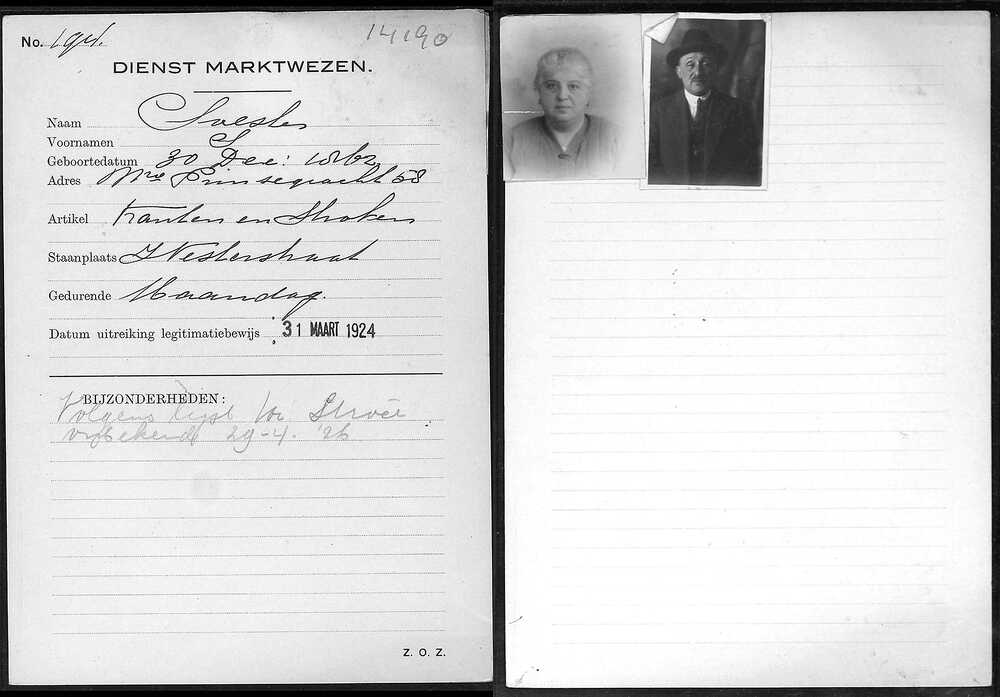 No. 194.
14190
DIENST MARKTWEZEN.
Naam Soester
Voornamen S
Geboortedatum 30 Dec: 1862
Adres Nwe Prinsegracht 58
Artikel Kanten en Stroken
Staanplaats Westerstraat
Gedurende Maandag.
Datum uitreiking legitimatiebewijs 31 MAART 1924
BIJZONDERHEDEN:
Volgens lijst
29-4. '26
Z. O. Z.